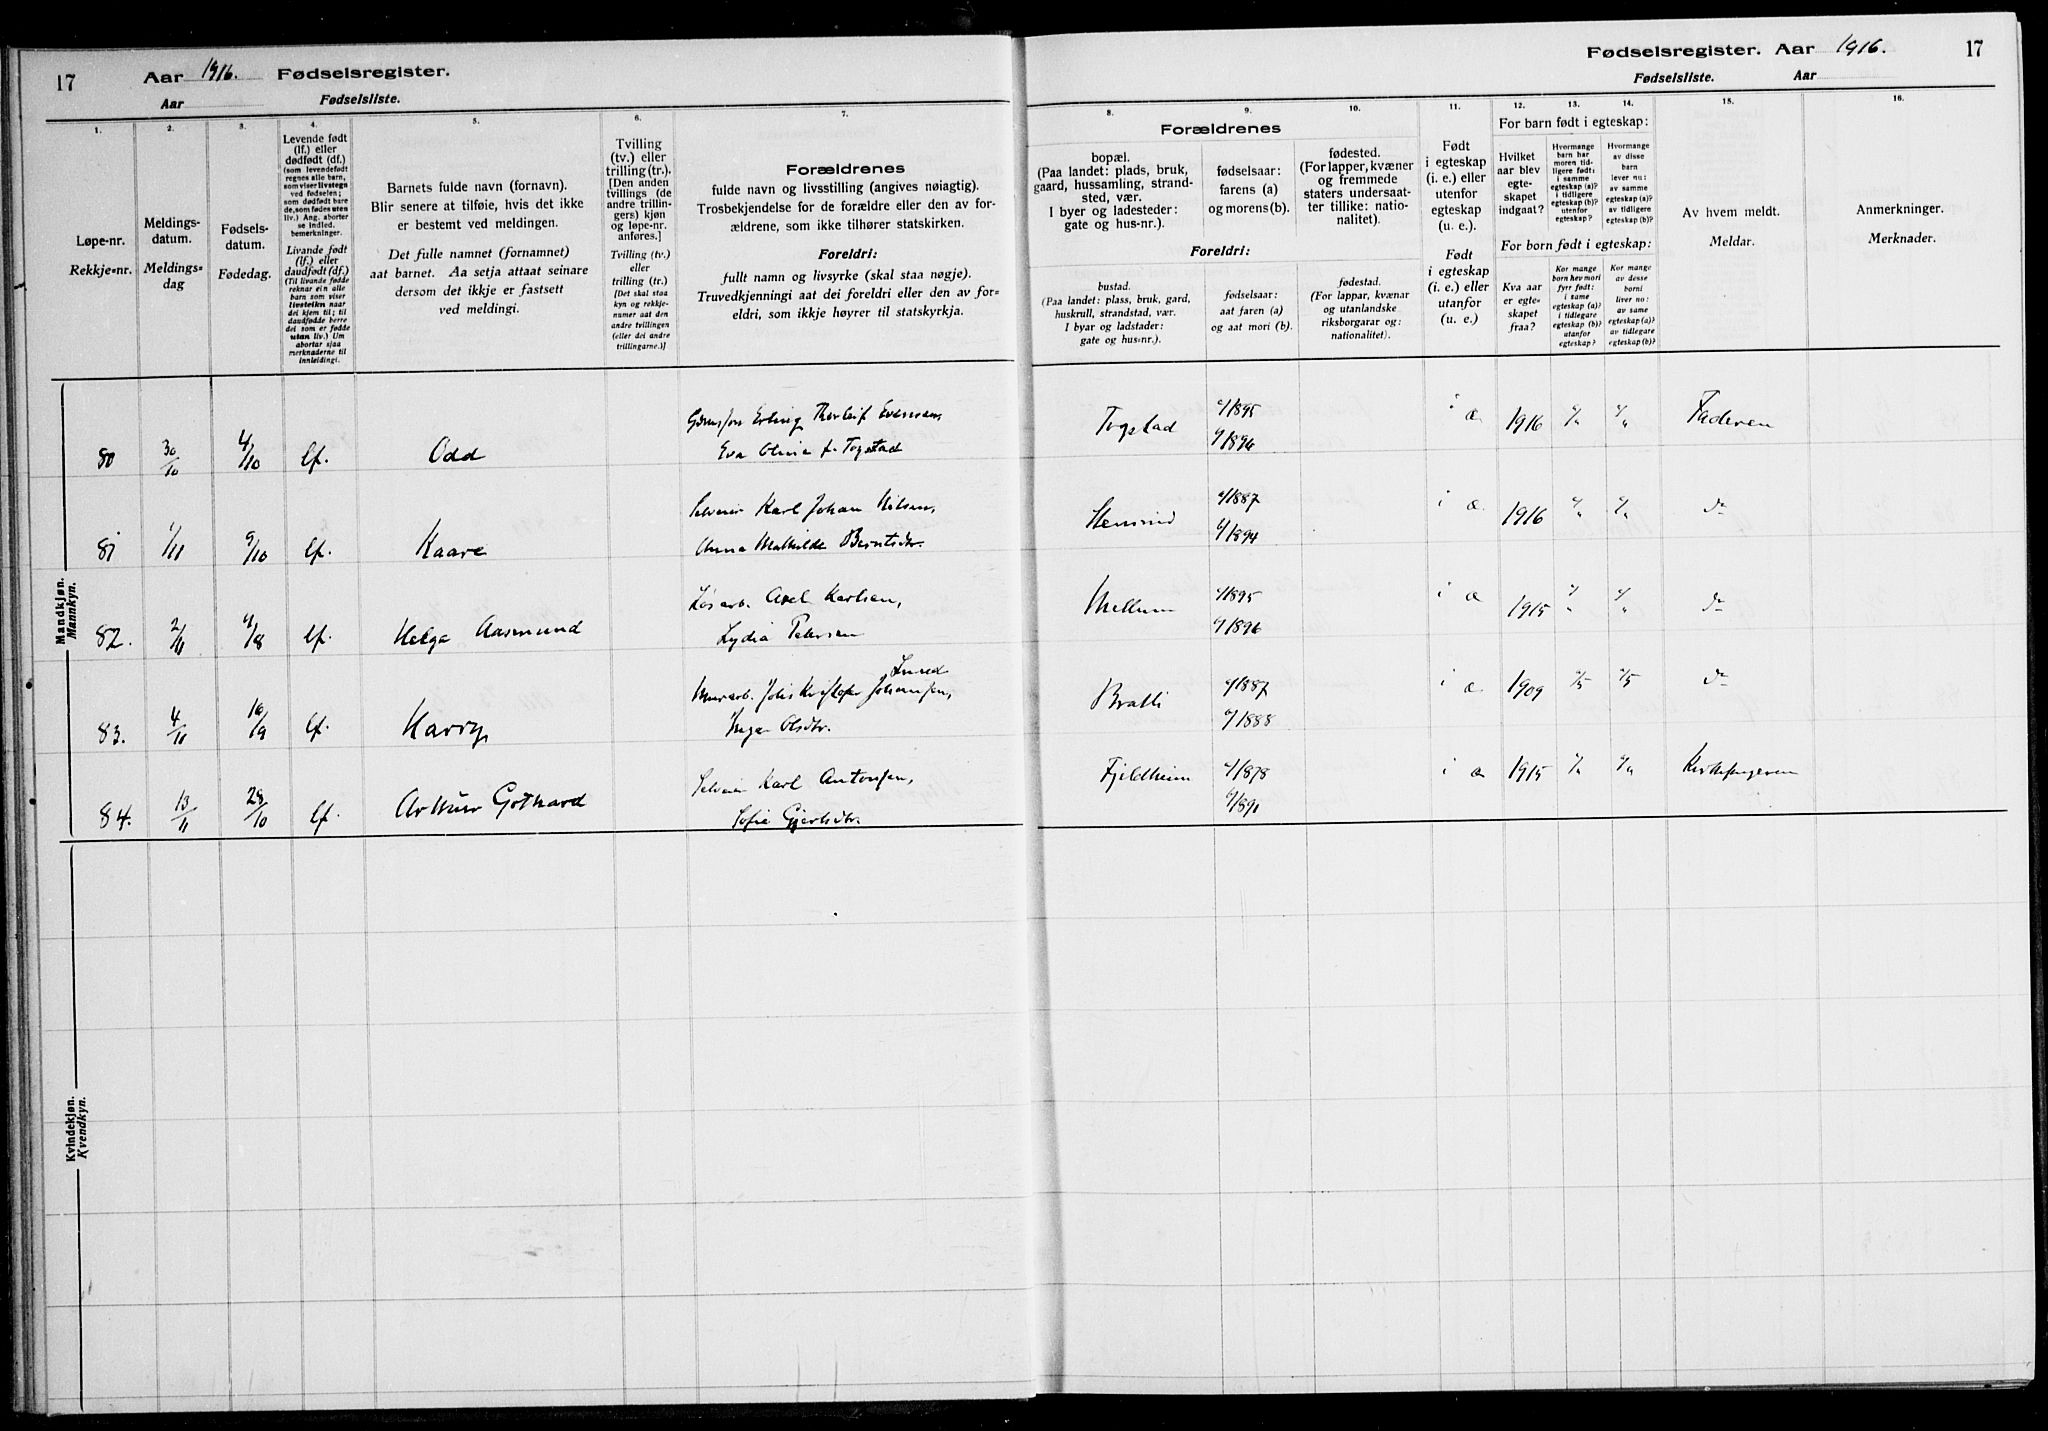 17 Aar 1916. Fødselsregister.
Aar Fødselsliste.
Fødselsregister. Aar 1916. 17
Fødselsliste. Aar
1. 2. 3. 4. 5. 6. 7.
8. 9. 10. 11. 12. 13. 14. 15. 16.
Løpe-nr.
Rekkje-nr.
Meldings-
datum.
Meldings-
dag
Fødsels-
datum.
Fødedag.
Levende født
(lf.) eller
dødfødt (df.)
(som levendefødt
regnes alle barn,
som viser livstegn
ved fødselen;
som dødfødt bare
de, som fødes uten
liv.) Ang. aborter
se indled.
bemerkninger.
Livande født
(lf.) eller
daudfødt (df.)
(Til livande fødde
reknar ein alle
barn som viser
livsteikn naar
dei kjem til; til
daudfødde berre
dei som er fødde
utan liv.) Um
abortar sjaa
merknaderne til
innleidingi.
Barnets fulde navn (fornavn).
Blir senere at tilføie, hvis det ikke
er bestemt ved meldingen.
Det fulle namnet (fornamnet)
aat barnet. Aa setja attaat seinare
dersom det ikkje er fastsett
ved meldingi.
Tvilling
(tv.) eller
trilling (tr.).
[Den anden
tvillings (de
andre trillin-
gers) kjøn
og løpe-nr.
anføres.]
Tvilling (tv.)
eller
trilling (tr.).
[Det skal staa
kyn og rekkje-
numer aat den
andre tvillingen
(eller dei andre
trillingarne.)]
Forældrenes
fulde navn og livsstilling (angives nøiagtig).
Trosbekjendelse for de forældre eller den av for-
ældrene, som ikke tilhører statskirken.
Foreldri:
fullt namn og livsyrke (skal staa nøgje).
Truvedkjenningi aat dei foreldri eller den av for-
eldri, som ikkje høyrer til statskyrkja.
Forældrenes
bopæl.
(Paa landet: plads, bruk,
gaard, hussamling, strand-
sted, vær.
I byer og ladesteder:
gate og hus-nr.).
fødselsaar:
farens (a)
og morens (b).
fødested.
(For lapper, kvæner
og fremmede
staters undersaat-
ter tillike: natio-
nalitet).
Foreldri:
bustad.
(Paa landet: plass, bruk, gard,
huskrull, strandstad, vær.
I byar og ladstader:
gate og hus-nr.).
fødselsaar:
aat faren (a)
og aat mori (b).
fødestad.
(For lappar, kvænar
og utanlandske
riksborgarar og:
nationalitet).
Født
i egteskap
(i. e.) eller
utenfor
egteskap
(u. e.).
Født
i egteskap
(i. e.) eller
utanfor
(u. e.).
For barn født i egteskap:
Hvilket
aar blev
egte-
skapet
indgaat?
Hvormange
barn har
moren tid-
ligere født:
i samme
egteskap (a)?
i tidligere
egteskap (b)?
utenfor
egteskap?
Hvormange
av disse
barn
lever nu:
av samme
egteskap (a)?
av tidligere
egteskap (b)?
For born født i egteskap:
Kva aar
er egte-
skapet
fraa?
Kor mange
born hev mori
fyrr født:
i same
egteskap (a)?
i tidlegare
egteskap (b)?
utanfor
egteskap?
Kor mange
av desse
borni
liver no:
av same
egteskap (a)?
av tidlegare
egteskap (b)?
Av hvem meldt.
Meldar.
Anmerkninger.
Merknader.
Mandkjøn.
Mannkyn.
80 30/10 4/10 lf. Odd Erling Thorleif Evensen, Eva Olivia f. Togstad Togstad 1895 1896 i æ 1916 Faderen
81 1/11 9/10 lf. Kaare Karl Johan Nilsen, Anna Mathilde Berntsdtr. 1887 1894 i æ 1916 do
82. 2/11 lf. Helge Aasmund Løsarb. Axel Karlsen, Lydia Petersen Mellum 1895 1896 i æ 1915 do
83. 4/11 16/9 lf. Harry Murarb. Johansen, Lund Inga Olsdtr. Bratli 1887 1888 i æ 1909 do
84. 13/11 28/10 lf. Arthur Gothard Karl Antonsen, Sofie Gjertsdtr. Fjeldheim 1878 1890 i æ 1915
Kvindekjøn.
Kvendkyn.